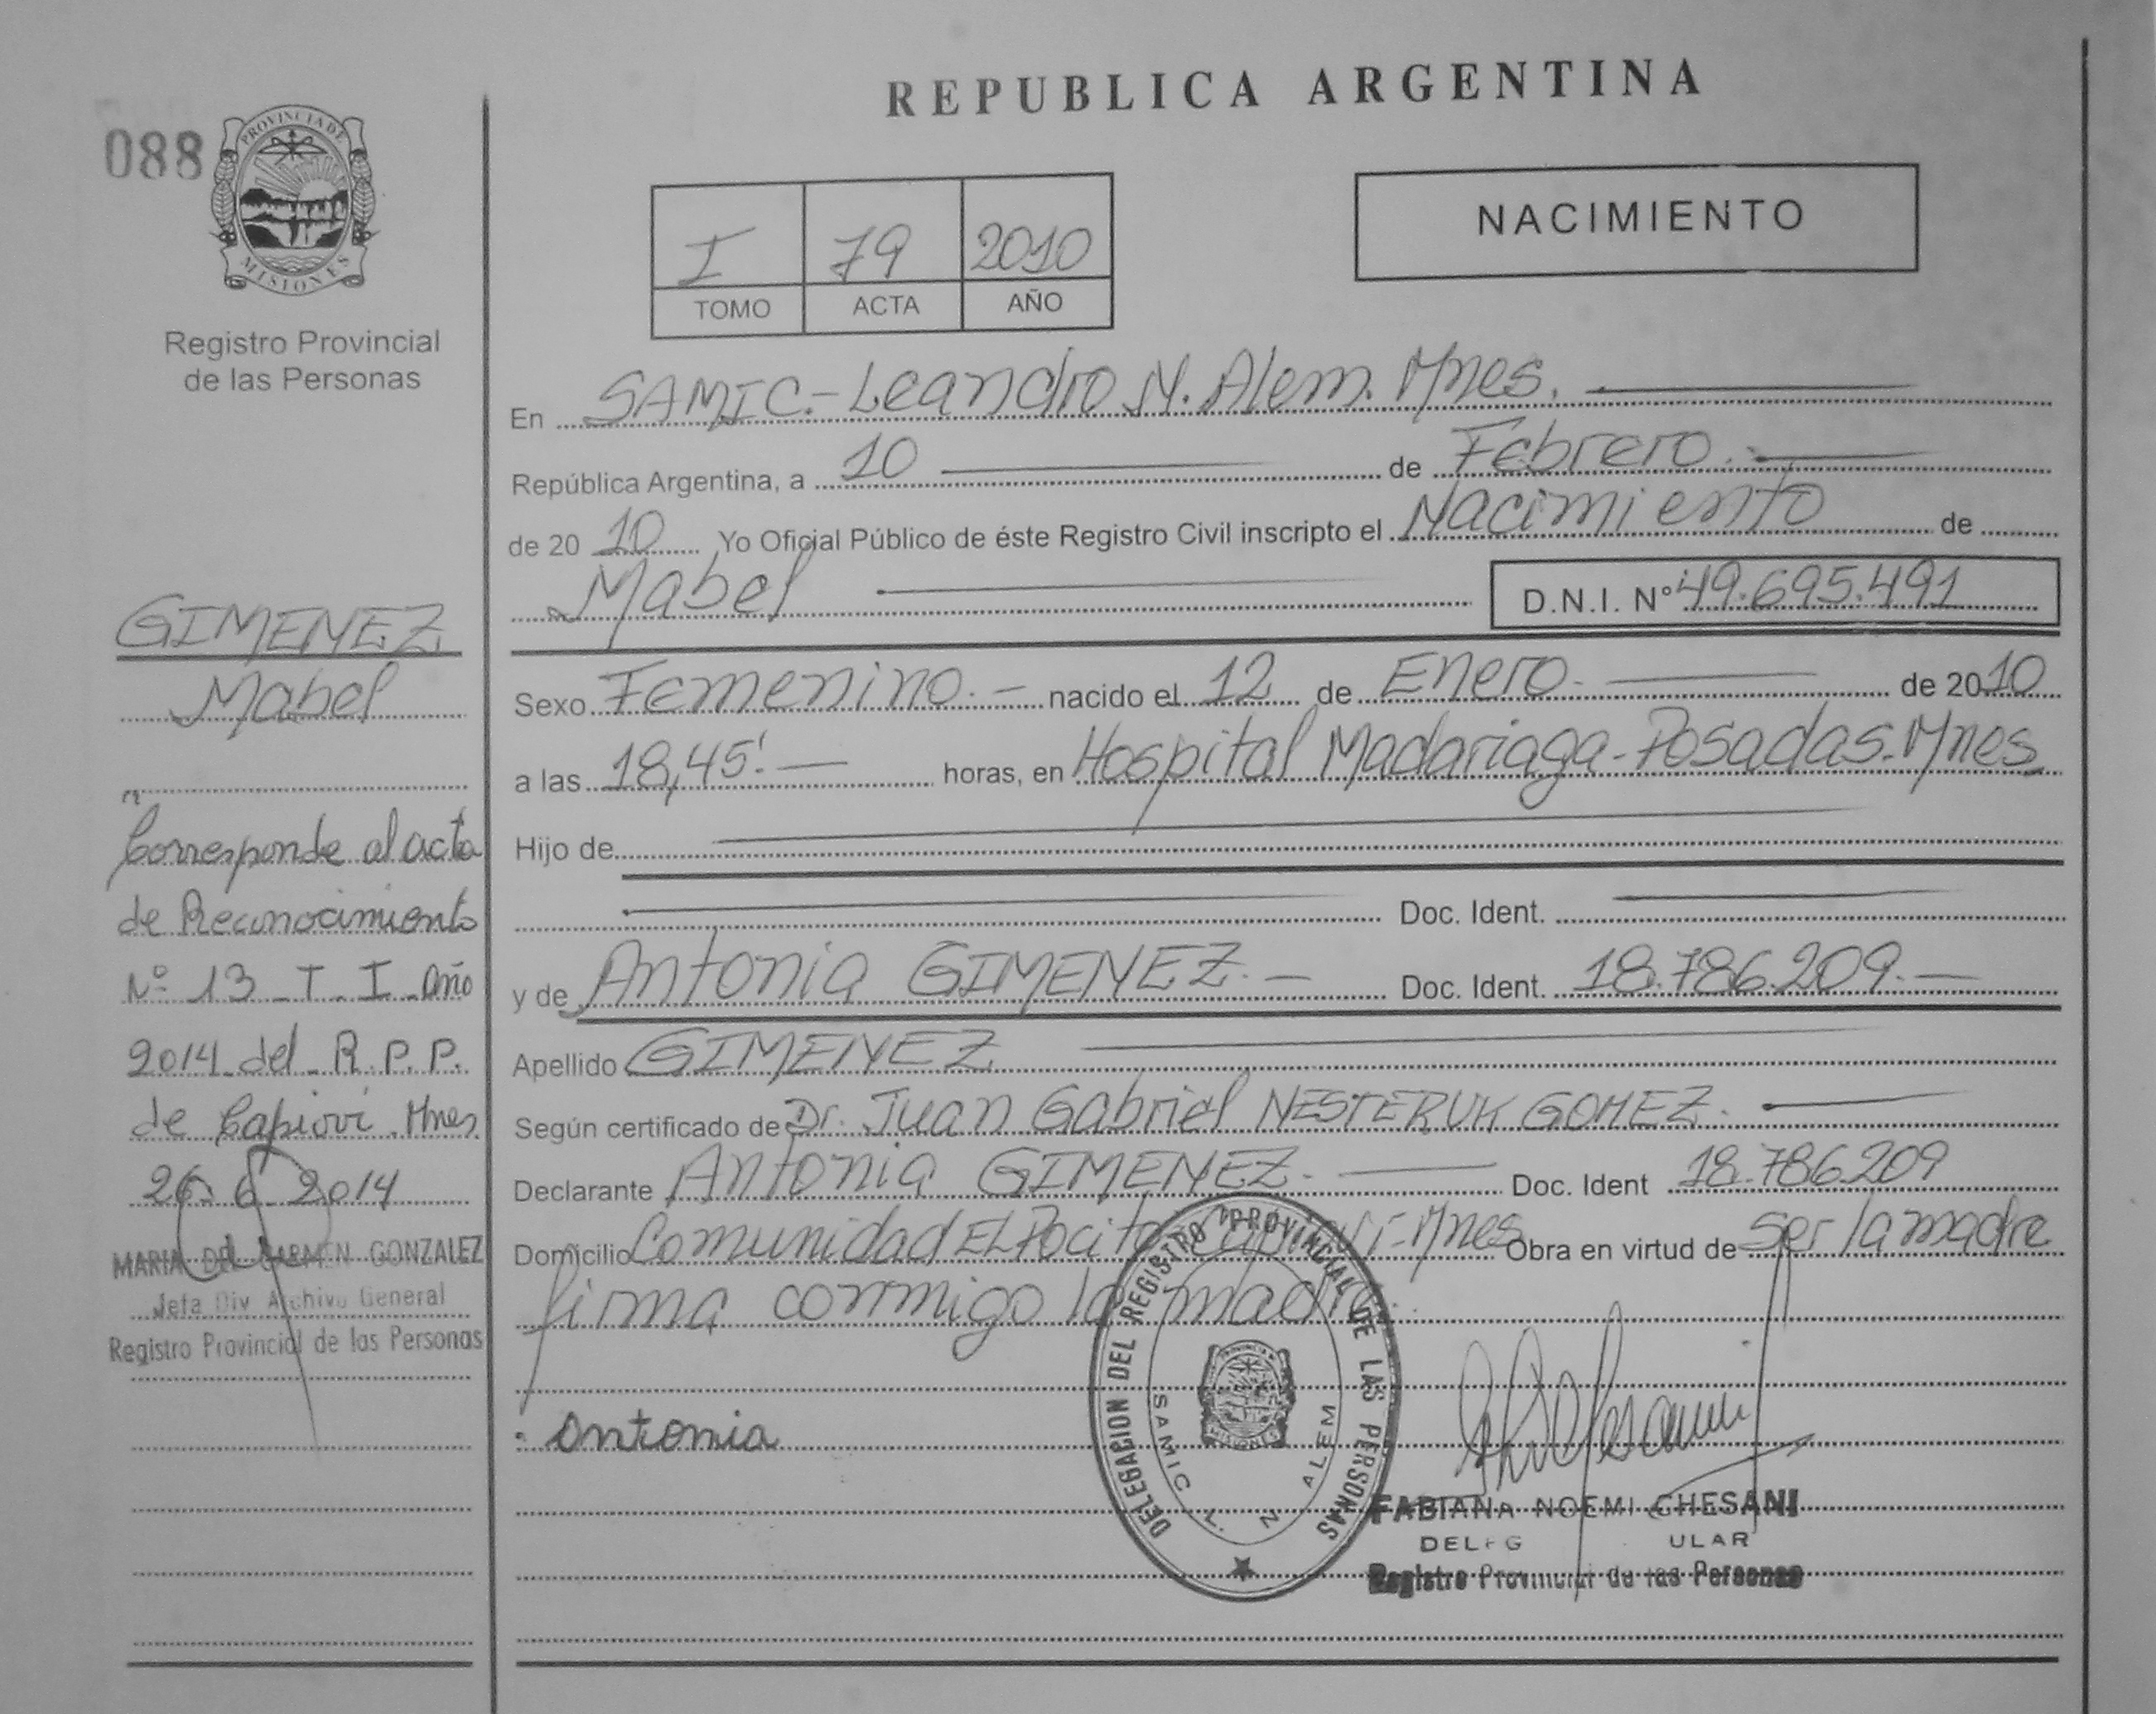 REPUBLICA ARGENTINA
088
PROVINCIA DE
MISIONES
Registro Provincial
de las Personas
NACIMIENTO
I 79 2010
TOMO ACTA AÑO
En SAMIC.- Leandro N. Alem. Mnes.
República Argentina, a 10 de Febrero.
de 2010 Yo Oficial Público de éste Registro Civil inscripto el Nacimiento de
Mabel D.N.I. Nº 49.695.491
GIMENEZ
Mabel
Sexo Femenino.- nacido el 12 de Enero. de 2010
a las 18,45'.- horas, en Hospital Madariaga-Posadas.Mnes
Hijo de
Doc. Ident.
y de Antonia GIMENEZ.- Doc. Ident. 18.786.209.-
Apellido GIMENEZ
Según certificado de Dr. Juan Gabriel NESTERUK GOMEZ.
Declarante Antonia GIMENEZ. Doc. Ident 18.786209
Domicilio Comunidad EL Pocito Capioví-Mnes Obra en virtud de ser la madre
firma conmigo la madre.
Corresponde al acta
de Reconocimiento
Nº 13 T. I Año
2014 del R.P.P.
de Capioví. Mnes
26 6 2014
MARIA DEL CARMEN GONZALEZ
Jefa Div Archivo General
Registro Provincial de las Personas
Antonia
DELEGACION DEL REGISTRO PROVINCIAL DE LAS PERSONAS
SAMIC L. N ALEM
PROVINCIA DE
MISIONES
FABIANA NOEMI CHESANI
DELEG ULAR
Registro Provincial de las Personas